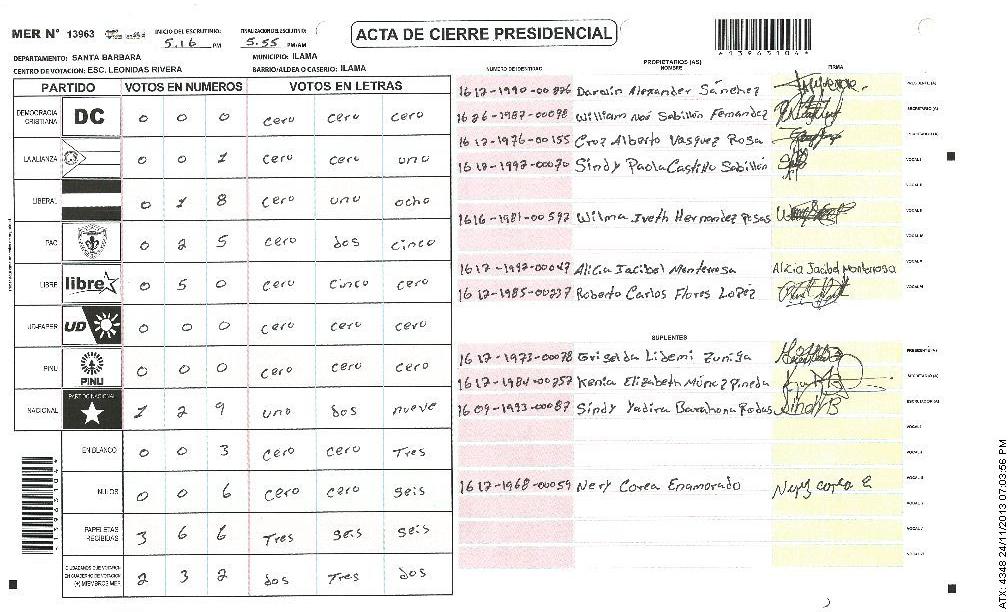 MER N° 13963
INICIO DEL ESCRUTINIO: 5.16 PM
FINALIZACION DEL ESCRUTINIO: 5.55 PM/AM
ACTA DE CIERRE PRESIDENCIAL
DEPARTAMENTO: SANTA BARBARA
MUNICIPIO: ILAMA
CENTRO DE VOTACION: ESC. LEONIDAS RIVERA
BARRIO/ALDEA O CASERIO: ILAMA
PARTIDO VOTOS EN NUMEROS VOTOS EN LETRAS
DEMOCRACIA CRISTIANA DC 0 0 0 cero cero cero
LA ALIANZA 0 0 1 cero cero uno
LIBERAL 0 1 8 cero uno ocho
PAC 0 2 5 cero dos cinco
LIBRE libre 0 5 0 cero cinco cero
UD-FAPER UD 0 0 0 cero cero cero
PINU PINU 0 0 0 cero cero cero
NACIONAL PARTIDO NACIONAL 1 2 9 uno dos nueve
EN BLANCO 0 0 3 cero cero Tres
NULOS 0 0 6 cero cero seis
PAPELETAS RECIBIDAS 3 6 6 Tres seis seis
CIUDADANOS QUE VOTARON EN CUADERNO DE VOTACION (+) MIEMBROS MER 2 3 2 dos Tres dos
PROPIETARIOS (AS)
NUMERO DE IDENTIDAD NOMBRE FIRMA
1617-1990-00826 Darwin Alexander Sánchez PRESIDENTE (A)
1626-1987-00098 William Noé Sabillón Fernandez SECRETARIO (A)
1617-1976-00155 Cruz Alberto Vasquez Rosa
1617-1997-00070 Sindy Paola Castillo Sabillón VOCAL I
1616-1981-00597 Wilma Iveth Hernandez Rosas
1617-1992-00047 Alicia Jacibel Monterrosa Alicia Jacibel Monterrosa
1617-1985-00237 Roberto Carlos Flores López
SUPLENTES
1617-1973-00078 Griselda Lidemi Zuniga PRESIDENTE (A)
1617-1984-00257 Kenia Elizabeth Múnoz Pineda SECRETARIO (A)
1609-1993-00087 Sindy Yadira Barahona Rodas Sindy B ESCRUTADOR (A)
1617-1968-00059 Nery Corea Enamorado Nery corea E
*13963104*
ATX: 4348 24/11/2013 07:03:56 PM